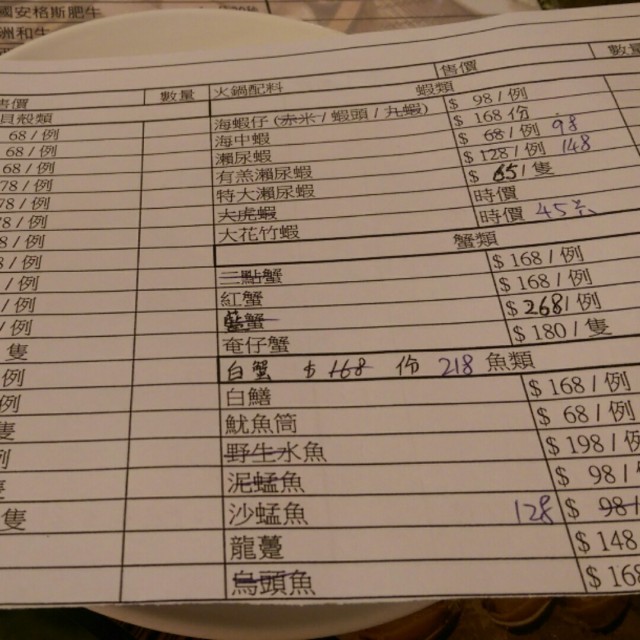 國安格斯肥牛
洲和牛
售價 數量 火鍋配料 售價 數量
貝殼類 蝦類
68 / 例 海蝦仔 (赤米 / 蝦頭 / 丸蝦) $ 98 / 例
68 / 例 海中蝦 $ 168 份
68 / 例 瀨尿蝦 $ 68 / 例 98
78 / 例 有羔瀨尿蝦 $ 128 / 例 148
78 / 例 特大瀨尿蝦 $ 65 / 隻
78 / 例 大虎蝦 時價
8 / 例 大花竹蝦 時價 45
8 / 例 蟹類
/ 例 三點蟹 $ 168 / 例
/ 例 紅蟹 $ 168 / 例
/ 例 藍蟹 $ 268 / 例
隻 奄仔蟹 $ 180 / 隻
例 白蟹 $ 168 份 218 魚類
例 白鱔 $ 168 / 例
隻 魷魚筒 $ 68 / 例
例 野生水魚 $ 198 / 例
隻 泥蜢魚 $ 98 /
隻 沙蜢魚 128 $ 98 /
龍躉 $ 148
烏頭魚 $ 168